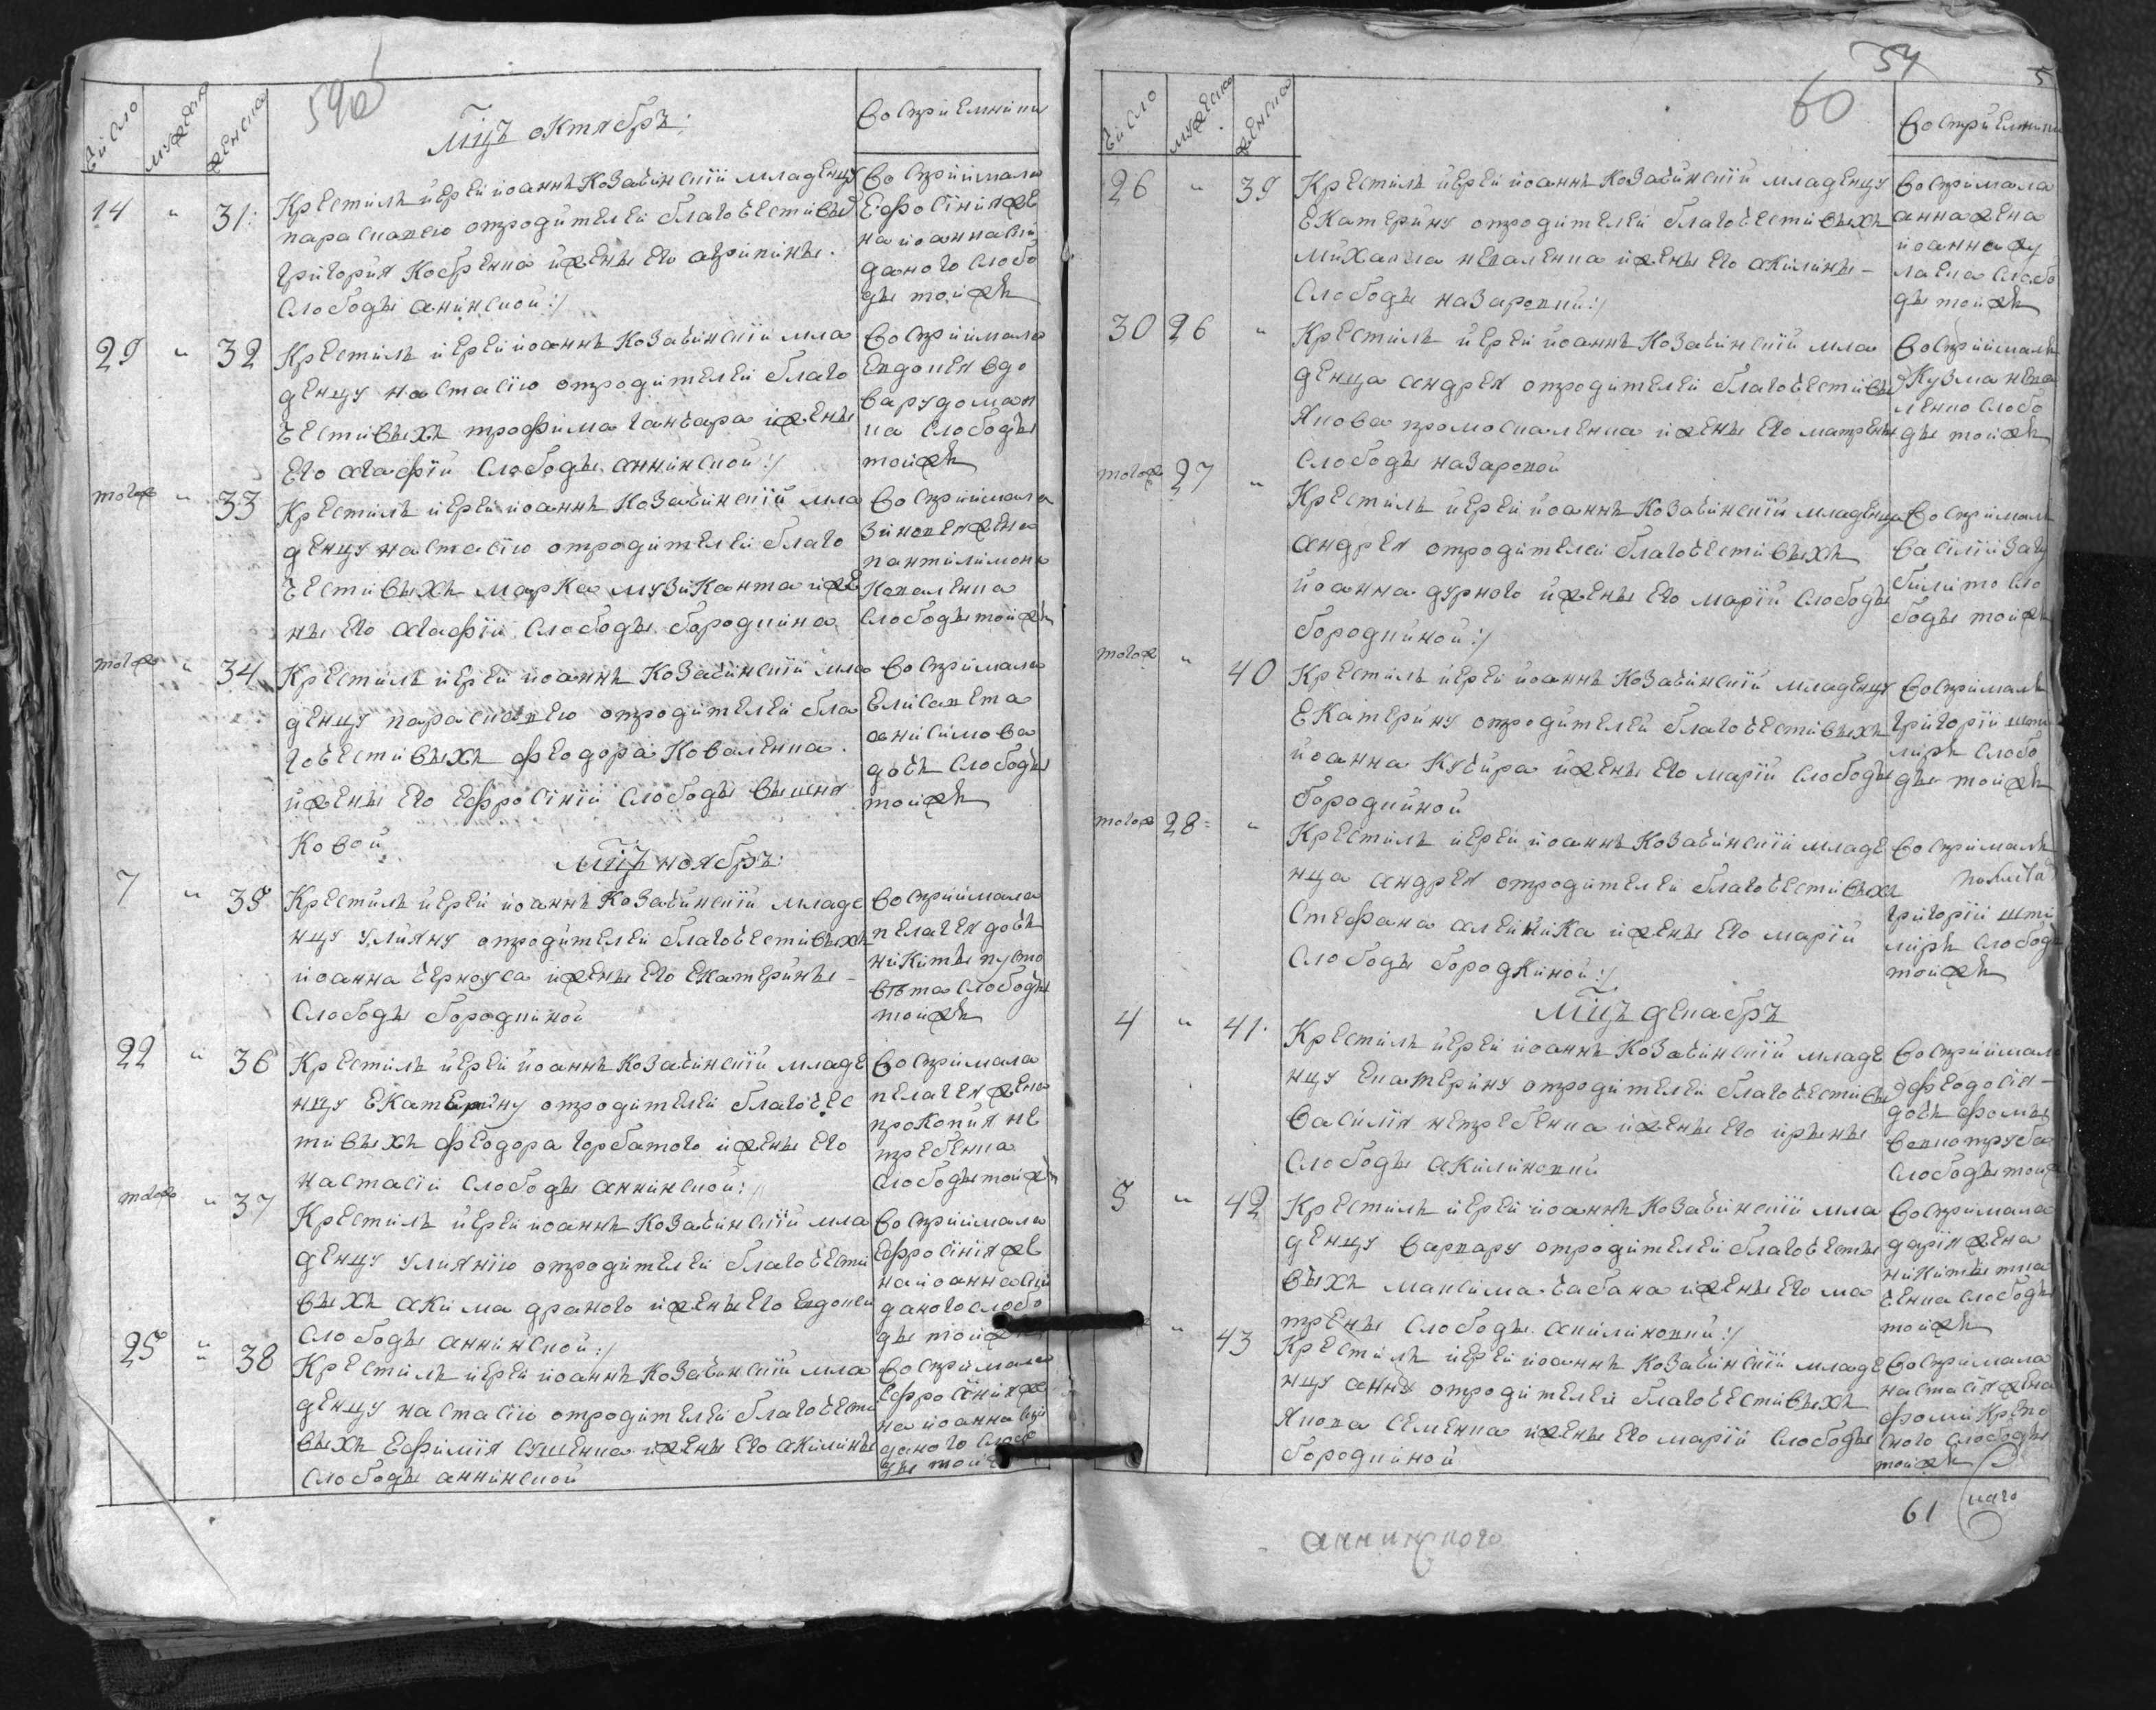 59об
число мужеск женска
Мцъ октябръ:
восприемники
14 " 31:
Крестилъ иерей иоаннъ Козачинскiй младенцу
параскавею отродителей благочестивых
григория Костенка ижены его агрипины.
Слободы анинской:/
восприимала
Ефросиния же
на иоанна
даного слобо
ды тойжъ
29 " 32
Крестилъ иерей иоаннъ Козачинскiй мла
денцу настасiю отродителей благо
честивыхъ трофима ганчара ижены
его агафiи слободы аннинской:/
восприимала
Евдокея вдо
ва
на слободы
тойжъ
тогож " 33
Крестилъ иерей иоаннъ Козачинскiй мла
денцу настасiю отродителей благо
честивыхъ марка музиканта иже
ны его агафiи слободы бородкина
восприимала
зиновея жена
пантилимона
Коваленка
слободы тойжъ
тогож " 34
Крестилъ иерей иоаннъ Козачинскiй мла
денцу параскавею отродителей бла
гочестивыхъ феодора Коваленка
ижены его ефросiнiи слободы вышня
ковой
восприимала
Елисавета
анисимова
дочъ слободы
тойжъ
Мцъ ноябръ:
7 " 35
Крестилъ иерей иоаннъ Козачинскiй младе
нцу улияну отродителей благочестивыхъ
иоанна черноуса ижены его екатерины
Слободы бородкиной
восприимала
пелагея дочъ
никиты пусто
вѣта слободы
тойжъ
22 " 36
Крестилъ иерей иоаннъ Козачинскiй младе
нцу екатерину отродителей благочес
тивыхъ феодора горбатого ижены его
настасiи слободы аннинской:
восприимала
пелагея жена
прокопия не
требенка
слободы тойжъ
тогож " 37
Крестилъ иерей иоаннъ Козачинскiй мла
денцу улиянiю отродителей благочести
выхъ акима драного ижены его евдокеи
слободы аннинской:/
восприимала
ефросiния же
на иоанна
даного слобо
ды тойжъ
25 " 38
Крестилъ иерей иоаннъ Козачинскiй мла
денцу настасiю отродителей благочести
выхъ ефимiя сущенка ижены его акилины
слободы аннинской
восприимала
ефросiния же
на иоанна
даного слобо
ды тойжъ
54
60
число мужеска женска
восприемники
26 " 39
Крестилъ иерей иоаннъ Козачинскiй младенцу
екатерину отродителей благочестивыхъ
михаила коваленка ижены его акилины -
Слободы назаровки:/
восприимала
анна жена
иоанна ку
лаека слобо
ды тойжъ
30 26 "
Крестилъ иерей иоаннъ Козачинскiй мла
денца андрея отродителей благочестивы
якова промоскаленка ижены его матрены
слободы назаровой
восприималъ
хъ кузма кова
ленко слобо
ды тойжъ
тогож 27 "
Крестилъ иерей иоаннъ Козачинскiй младенца
андрея отродителей благочестивыхъ
иоанна дурного ижены его марiи слободы
бородкиной:/
восприималъ
василiй загу
билито сло
боды тойжъ
тогож " 40
Крестилъ иерей иоаннъ Козачинскiй младенцу
екатерину отродителей благочестивыхъ
иоанна кучира ижены его марiи слободы
бородкиной
восприималъ
григорiй
слобо
ды тойжъ
тогож 28 "
Крестилъ иерей иоаннъ Козачинскiй младе
нца андрея отродителей благочестивыхъ
стефана алейника ижены его марiи
слободы бородкиной:/
восприималъ
григорiй
слободы
тойжъ
Мцъ декабръ
4 " 41.
Крестилъ иерей иоаннъ Козачинскiй младе
нцу екатерину отродителей благочестивы
василiя нетребенка ижены его ирыны
слободы акилиновки
восприимала
хъ феодосiя -
дочъ фомы
вовкотруба
слободы тойж
5 " 42
Крестилъ иерей иоаннъ Козачинскiй мла
денцу варвару отродителей благочести
выхъ максима чабана ижены его ма
трены слободы акилиновки:/
восприимала
дарiя жена
никиты тка
ченка слободы
тойжъ
" 43
Крестилъ иерей иоаннъ Козачинскiй младе
нцу анну отродителей благочестивыхъ
якова семенка ижены его марiи слободы
бородкиной
восприимала
настасiя жена
фоми
слободы
тойжъ
61
аннинского